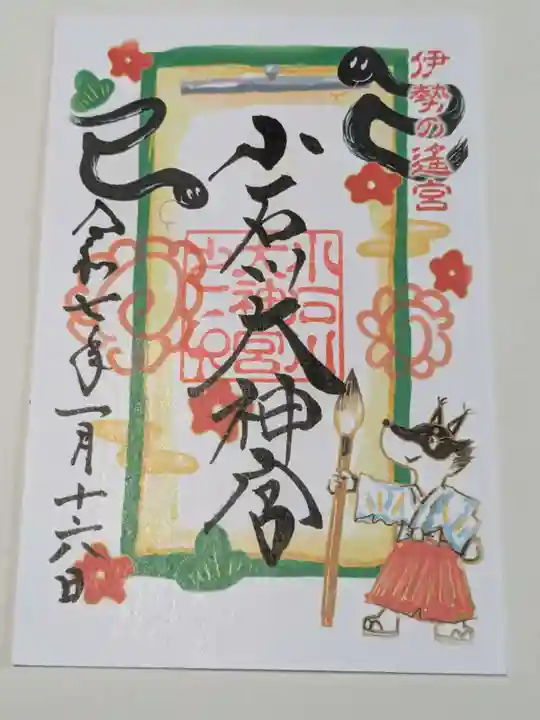 伊勢の遙宮
小石川大神宮
小石川
大神宮
巳
令和七年一月十六日